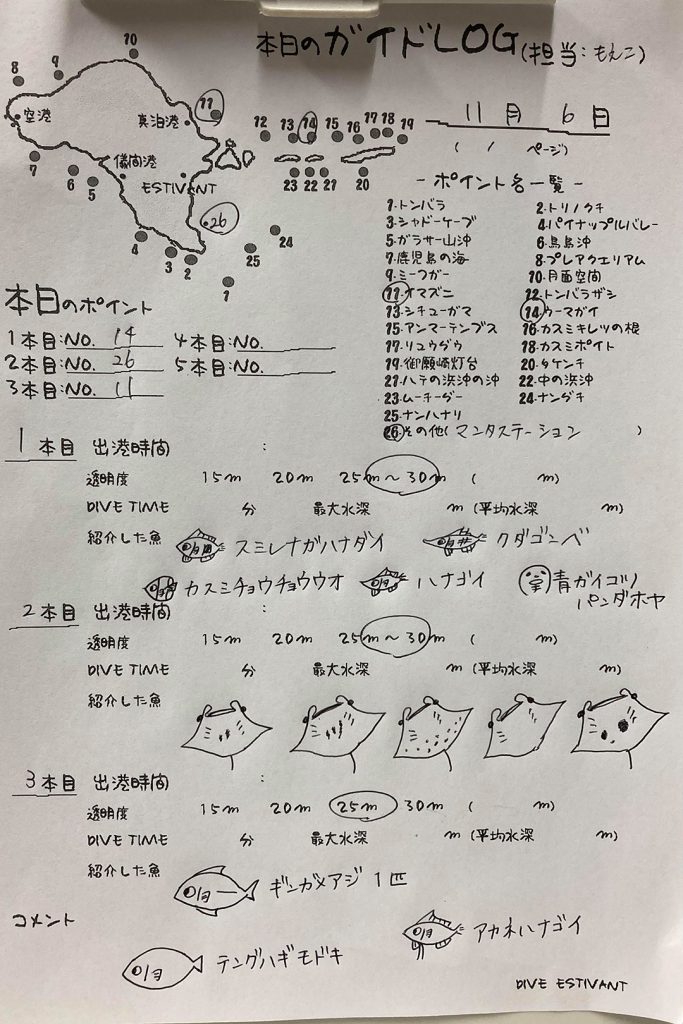 本日のガイドLOG(担当:もえこ)
11月 6日
( 1 ページ)
10
8 9
空港 真泊港 11
12 13 14 15 16 17 18 19
7 6 5 儀間港
ESTIVANT
23 22 21 20
26
4 3 2 25 24
1
- ポイント名一覧 -
1.トンバラ 2.トリノクチ
3.シャドーケーブ 4.パイナップルバレー
5.ガラサー山沖 6.鳥島沖
7.鹿児島の海 8.プレアクエリアム
9.ミーフガー 10.月面空間
11.イマズニ 12.トンバラザシ
13.シチューガマ 14.ウーマガイ
15.アンマーテンブス 16.カスミキレツの根
17.リュウグウ 18.カスミポイト
19.御願崎灯台 20.タケンチ
21.ハテの浜沖の沖 22.中の浜沖
23.ムーチーグー 24.ナングチ
25.ナンハナリ
26.その他(マンタステーション )
本日のポイント
1本目:NO. 14 4本目:NO.
2本目:NO. 26 5本目:NO.
3本目:NO. 11
1本目 出港時間 :
透明度 15m 20m 25m~30m ( m)
DIVE TIME 分 最大水深 m (平均水深 m)
紹介した魚 スミレナガハナダイ クダゴンベ
カスミチョウチョウウオ ハナゴイ 青ガイコツパンダホヤ
2本目 出港時間 :
透明度 15m 20m 25m~30m ( m)
DIVE TIME 分 最大水深 m (平均水深 m)
紹介した魚
3本目 出港時間 :
透明度 15m 20m 25m 30m ( m)
DIVE TIME 分 最大水深 m (平均水深 m)
紹介した魚 ギンガメアジ 1匹
コメント アカネハナゴイ
テングハギモドキ
DIVE ESTIVANT